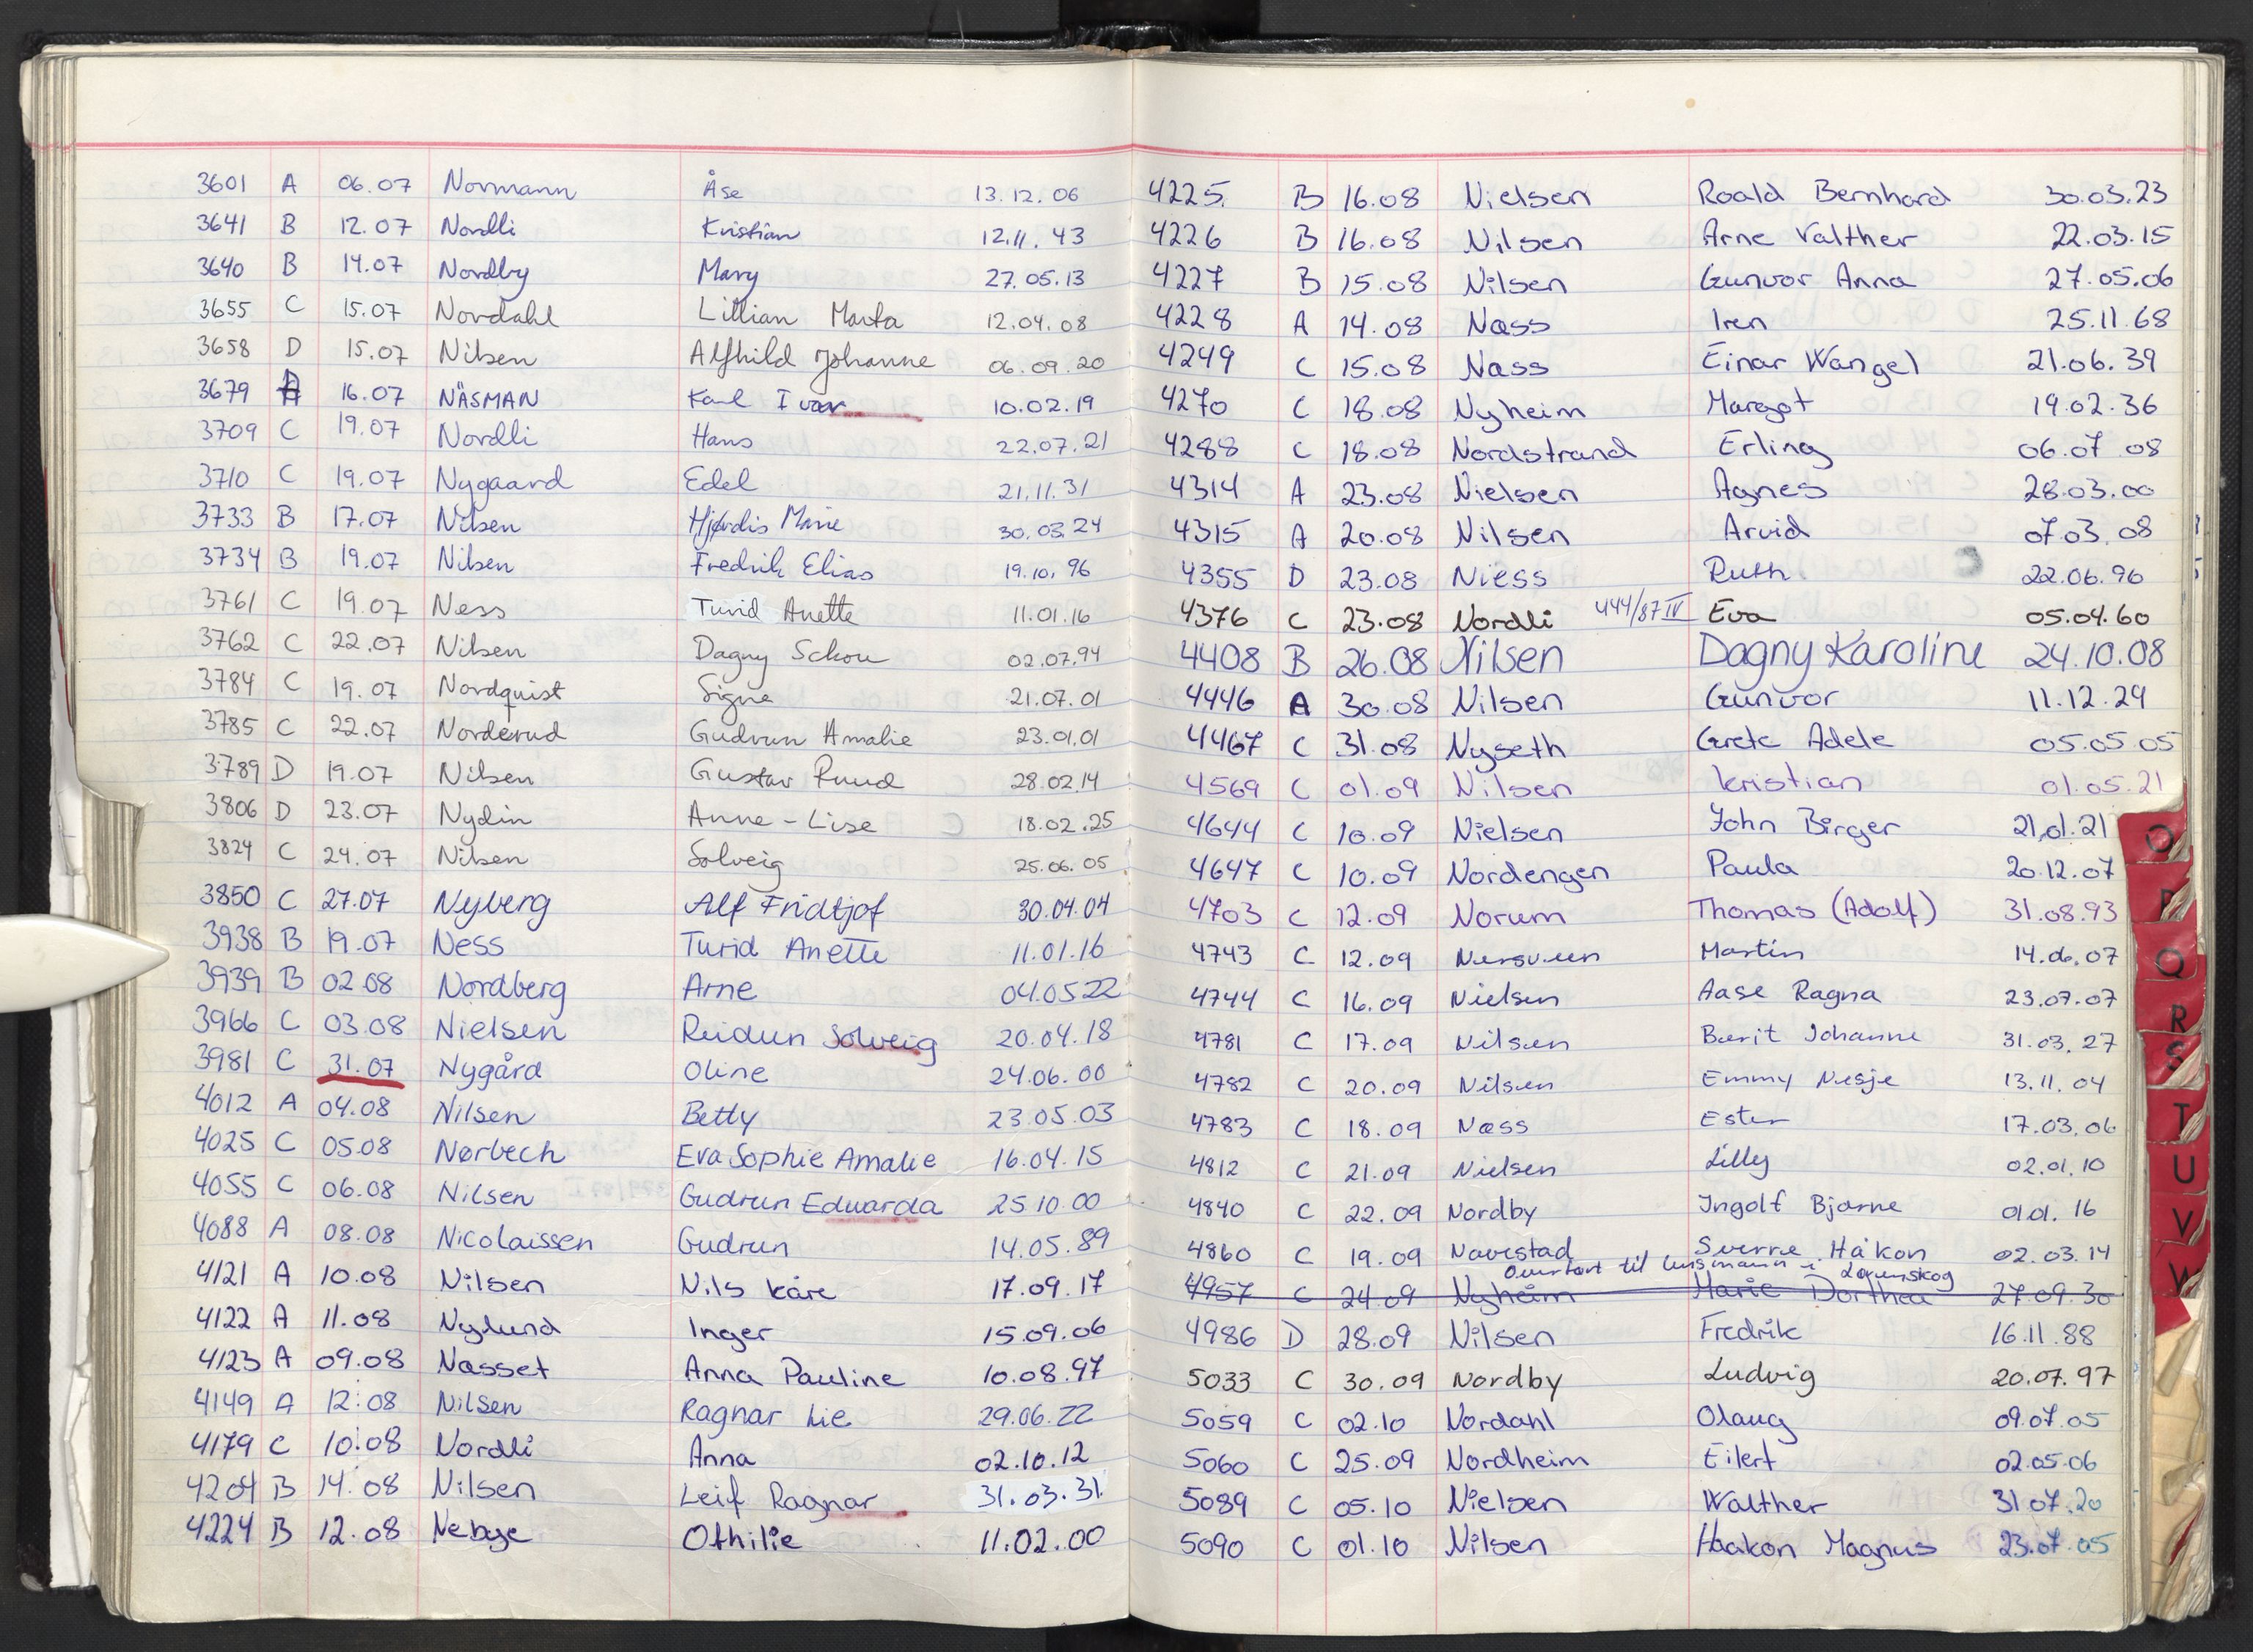 3601 A 06.07 Normann Åse 13.12.06
3641 B 12.07 Nordli Kristian 12.11.43
3640 B 14.07 Nordby Mary 27.05.13
3655 C 15.07 Nordahl Lillian Marta 12.04.08
3658 D 15.07 Nilsen Alfhild Johanne 06.09.20
3679 D 16.07 NÄSMAN Karl Ivar 10.02.19
3709 C 19.07 Nordli Hans 22.07.21
3710 C 19.07 Nygaard Edel 21.11.31
3733 B 17.07 Nilsen Hjørdis Marie 30.03.24
3734 B 19.07 Nilsen Fredrik Elias 19.10.96
3761 C 19.07 Ness Turid Anette 11.01.16
3762 C 22.07 Nilsen Dagny Schou 02.07.94
3784 C 19.07 Nordquist Signe 21.07.01
3785 C 22.07 Norderud Gudrun Amalie 23.01.01
3789 D 19.07 Nilsen Gustav Ruud 28.02.14
3806 D 23.07 Nydin Anne-Lise 18.02.25
3824 C 24.07 Nilsen Solveig 25.06.05
3850 C 27.07 Nyberg Alf Fridtjof 30.04.04
3938 B 19.07 Ness Turid Anette 11.01.16
3939 B 02.08 Nordberg Arne 04.05.22
3966 C 03.08 Nielsen Reidun Solveig 20.04.18
3981 C 31.07 Nygård Oline 24.06.00
4012 A 04.08 Nilsen Betty 23.05.03
4025 C 05.08 Nørbech Eva Sophie Amalie 16.04.15
4055 C 06.08 Nilsen Gudrun Edvarda 25.10.00
4088 A 08.08 Nicolaissen Gudrun 14.05.89
4121 A 10.08 Nilsen Nils Kåre 17.09.17
4122 A 11.08 Nylund Inger 15.09.06
4123 A 09.08 Næsset Anna Pauline 10.08.97
4149 A 12.08 Nilsen Ragnar Lie 29.06.22
4179 C 10.08 Nordli Anna 02.10.12
4204 B 14.08 Nilsen Leif Ragnar 31.03.31
4224 B 12.08 Nebye Othilie 11.02.00
4225 B 16.08 Nielsen Roald Bernhard 30.03.23
4226 B 16.08 Nilsen Arne Valther 22.03.15
4227 B 15.08 Nilsen Gunvor Anna 27.05.06
4228 A 14.08 Næss Iren 25.11.68
4249 C 15.08 Næss Einar Wangel 21.06.39
4270 C 18.08 Nyheim Margot 19.02.36
4288 C 18.08 Nordstrand Erling 06.07.08
4314 A 23.08 Nielsen Agnes 28.03.00
4315 A 20.08 Nilsen Arvid 07.03.08
4355 D 23.08 Niess Ruth 22.06.96
4376 C 23.08 Nordli 444/87 IV Eva 05.04.60
4408 B 26.08 Nilsen Dagny Karoline 24.10.08
4446 A 30.08 Nilsen Gunvor 11.12.29
4467 C 31.08 Nyseth Grete Adele 05.05.05
4569 C 01.09 Nilsen Kristian 01.05.21
4644 C 10.09 Nielsen John Birger 21.01.21
4647 C 10.09 Nordengen Paula 20.12.07
4703 C 12.09 Norum Thomas (Adolf) 31.08.93
4743 C 12.09 Nersveen Martin 14.06.07
4744 C 16.09 Nielsen Aase Ragna 23.07.07
4781 C 17.09 Nilsen Berit Johanne 31.03.27
4782 C 20.09 Nilsen Emmy Nesje 13.11.04
4783 C 18.09 Næss Ester 17.03.06
4812 C 21.09 Nielsen Lilly 02.01.10
4840 C 22.09 Nordby Ingolf Bjarne 01.01.16
4860 C 19.09 Navestad Sverre Håkon 02.03.14
Overført til lensmann i Lørenskog
4957 C 24.09 Nyheim Marie Dorthea 27.09.30
4986 D 28.09 Nilsen Fredrik 16.11.88
5033 C 30.09 Nordby Ludvig 20.07.97
5059 C 02.10 Nordahl Olaug 09.07.05
5060 C 25.09 Nordheim Eilert 02.05.06
5089 C 05.10 Nielsen Walther 31.07.20
5090 C 01.10 Nilsen Haakon Magnus 23.07.05
O
P
Q
R
S
T
U
V
W